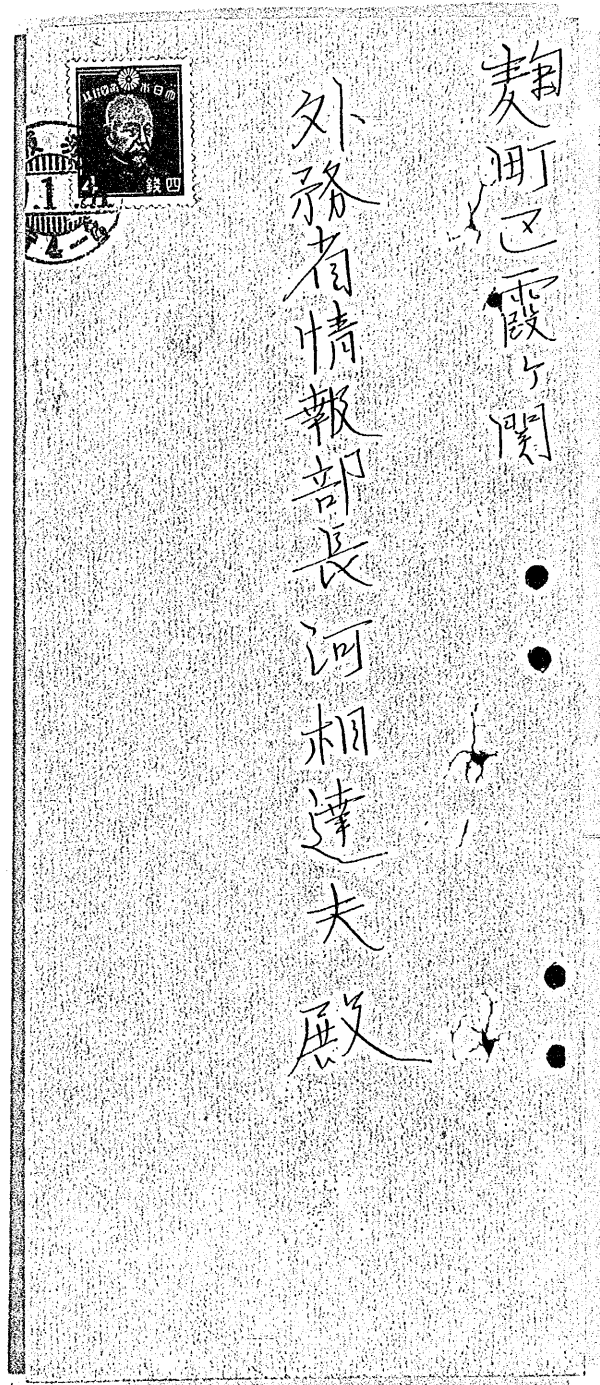 麹町区霞ヶ関
外務省情報部長河相達夫殿
大日本帝國郵便
四錢
4
1
4